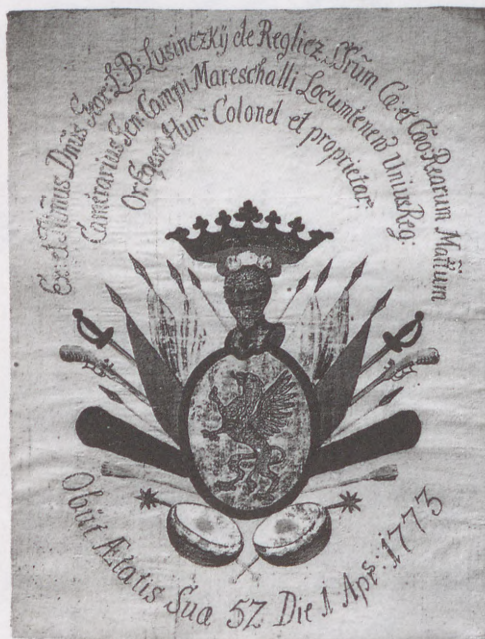 Ex: et Illmus Dnus Geor: L: B: Lusinczkÿ de Reglicz. SSrum Cæ: et Cæo Rearum Mattum
Camerarius Gen: Campi Mareschalli Locumtenens Unius Reg:
Or: Equest Hun: Colonel et proprietar:
Obiit Ætatis Suæ 52 Die 1 Apr: 1773